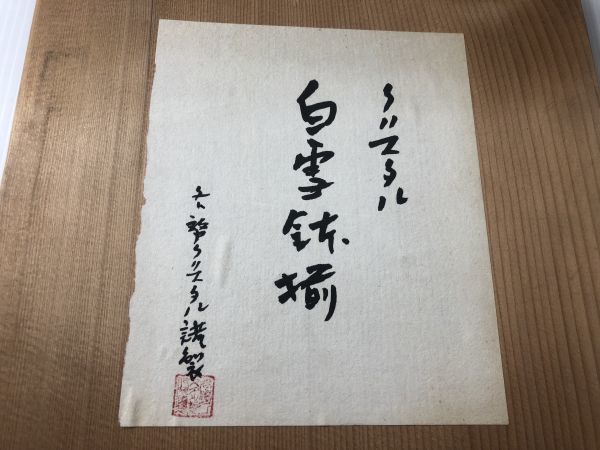 クリスタル
白雪鉢揃
クリスタル謹製